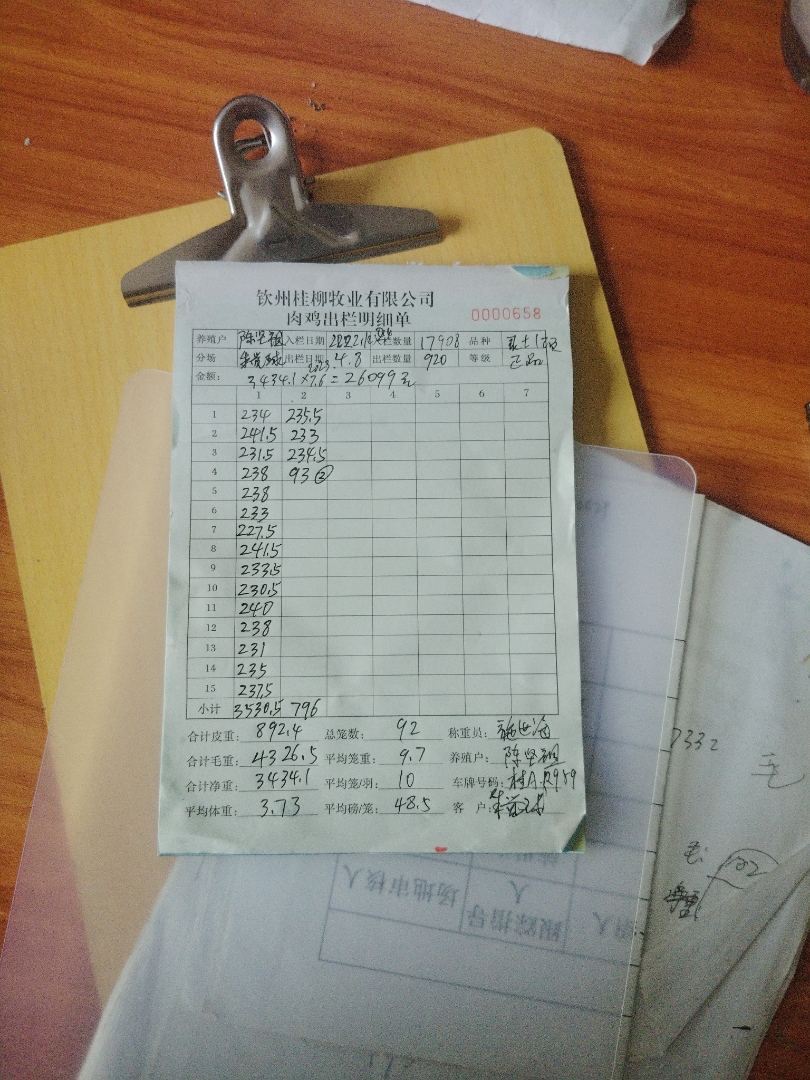 钦州桂柳牧业有限公司
肉鸡出栏明细单 0000658
养殖户 陈坚祖 入栏日期 栏数量 17908 品种
分场 出栏日期 2023.4.8 出栏数量 920 等级 正品
金额: 3434.1×7.6=26099元
1 2 3 4 5 6 7
1 234 235.5
2 241.5 233
3 231.5 234.5
4 238 93②
5 238
6 233
7 227.5
8 241.5
9 233.5
10 230.5
11 240
12 238
13 231
14 235
15 237.5
小计 3530.5 796
合计皮重: 892.4 总笼数: 92 称重员:
合计毛重: 4326.5 平均笼重: 9.7 养殖户: 陈坚祖
合计净重: 3434.1 平均笼/羽: 10 车牌号码: 桂A·R959
平均体重: 3.73 平均磅/笼: 48.5 客户:
7332
毛
跟踪指导人
场地审核人